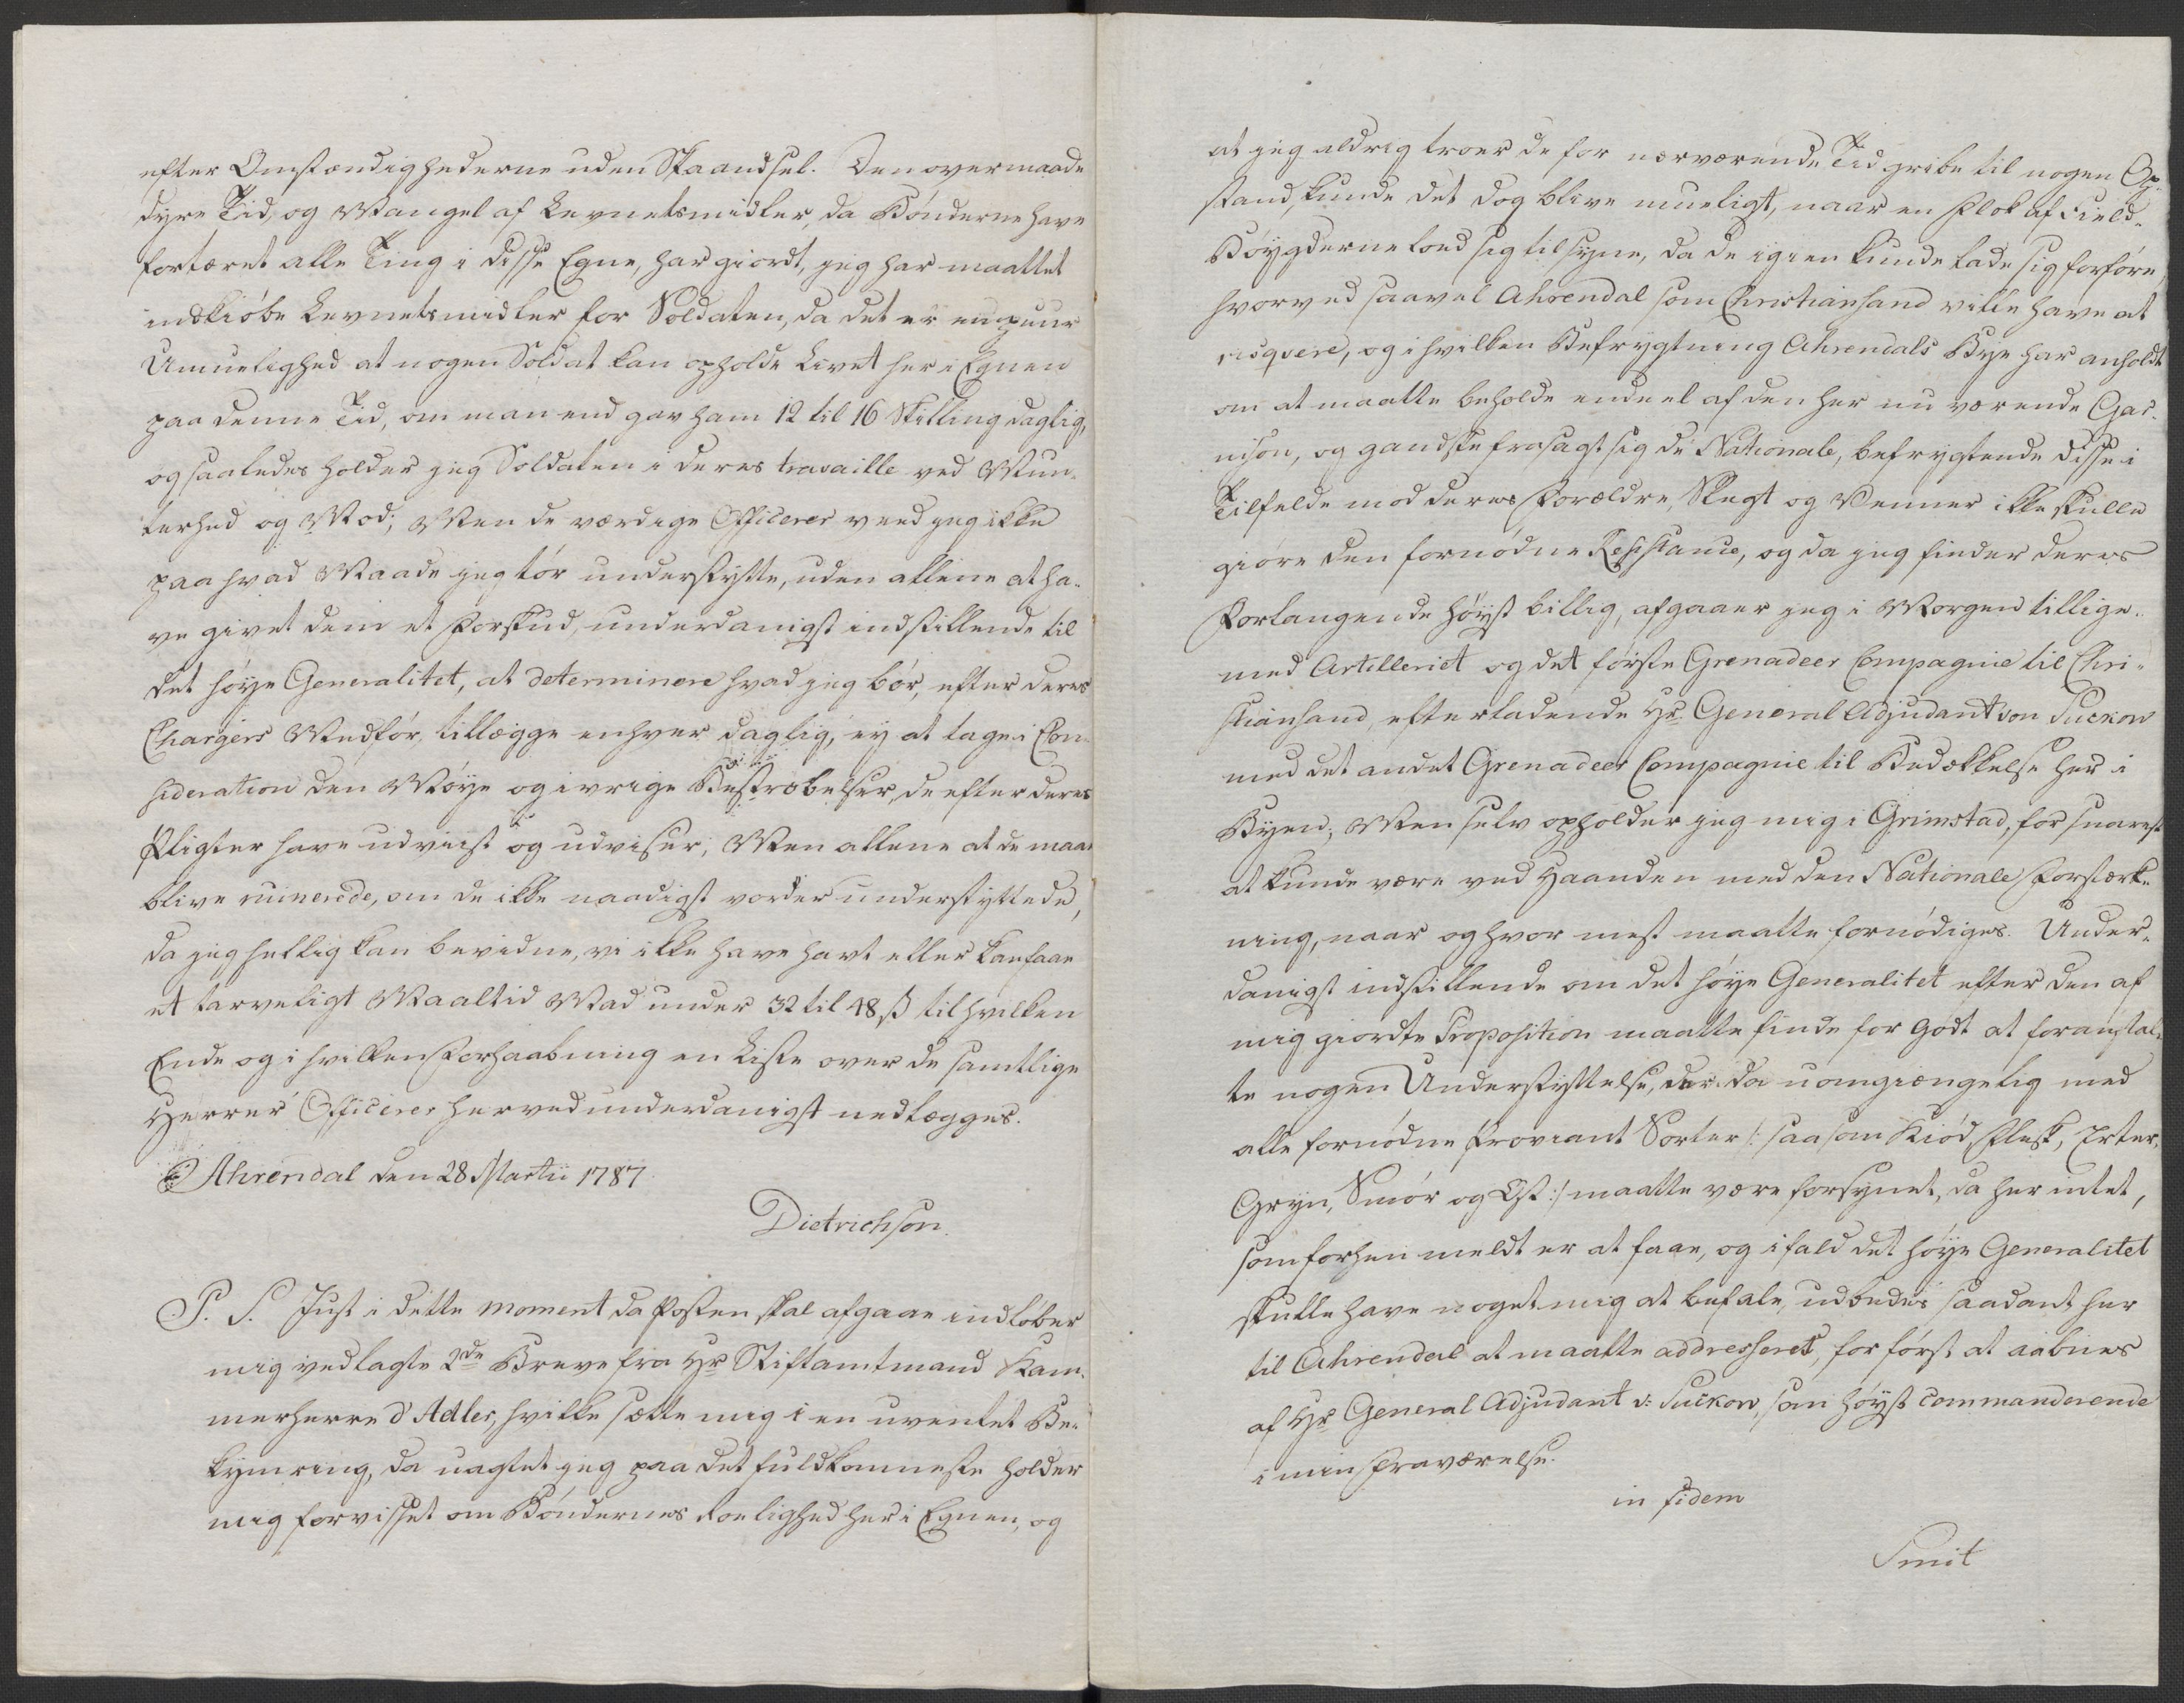 efter Omstændighederne uden Skaandsel. Den overmaade
dyre Tid, og Mangel af Levnetsmidler, da Bønderne have
fortæret alle Ting i disse Egne, har giordt, jeg har maattet
indkiøbe Levnetsmidler for Soldaten, da det er en puur
Umuelighed at nogen Soldat kan opholde Livet her i Egnen
paa denne Tid, om man end gav ham 12 til 16 Skilling daglig,
og saaledes holder jeg Soldaten i deres travaille ved Mun-
terhed og Mod; Men de værdige Officerer veed jeg ikke
paa hvad Maade jeg tør understytte, uden allene at ha-
ve givet dem et Forskud, underdanigst indstillende til
det høye Generalitet, at determinere hvad jeg bør, efter deres
Chargers Medfør, tillægge enhver daglig, ey at tage i Con-
sideration den Møye og ivrige Bestræbelser, de efter deres
Pligter have udviist og udviser; Men allene at de maae
blive ruinerede, om de ikke naadigst vorder understyttede,
da jeg hellig kan bevidne, vi ikke have havt eller kan faae
et tarveligt Maaltid Mad under 32 til 48 ß til hvilken
Ende og i hvilken Forhaabning en Liste over de samtlige
Herrer Officerer herved underdanigst nedlægges.
Ahrendal den 28 Martii 1787
Dietrichson.
P. S. Just i dette moment da Posten skal afgaae indløber
mig vedlagte 2de Breve fra Hr Stiftamtmand Kam-
merherre d'Adler, hvilke sætte mig i en uventet Be-
kymring, da uagtet jeg paa det fuldkomneste holder
mig forvisset om Bøndernes Roelighed her i Egnen, og
at jeg aldrig troer de for nærværende Tid gribe til nogen Op-
stand, kunde det dog blive mueligt, naar en Flok af Field-
Bøygderne loed sig tilsyne, da de igien kunde lade sig forføre,
hvorved saavel Ahrendal som Christiansand ville have at
risqvere, og i hvilken Befrygtning Ahrendals Bye har anholdt
om at maatte beholde endeel af den her nu værende Gar-
nison, og gandske frasagt sig de Nationale, befrygtende disse i
Tilfelde mod deres Forældre, Slegt og Venner ikke skulle
giøre den fornødne Resistance, og da jeg finder deres
Forlangende høyst billig, afgaaer jeg i Morgen tillige-
med Artilleriet og det første Grenadeer Compagnie til Chri-
stiansand, efterladende Hr. General Adjudant von Suckow
med det andet Grenadeer Compagnie til Bedækkelse her i
Byen; Men selv opholder jeg mig i Grimstad, for snarest
at kunde være ved Haanden med den Nationale Forstærk-
ning, naar og hvor mest maatte fornødiges. Under-
danigst indstillende om det høye Generalitet efter den af
mig giordte Proposition maatte finde for godt at foranstal-
te nogen Understyttelse, der da uomgiængelig med
alle fornødne Proviant Sorter /: saasom Kiød, Flesk, Erter,
Gryn, Smør og Ost :/ maatte være forsynet, da her intet,
som forhen meldt er at faae, og ifald det høye Generalitet
skulle have noget mig at befale, udbedes saadant her
til Ahrendal at maatte addresseret, for først at aabnes
af Hr General Adjudant v: Suckow, som høyst commanderende
i min Fraværelse.
in fidem
Smit